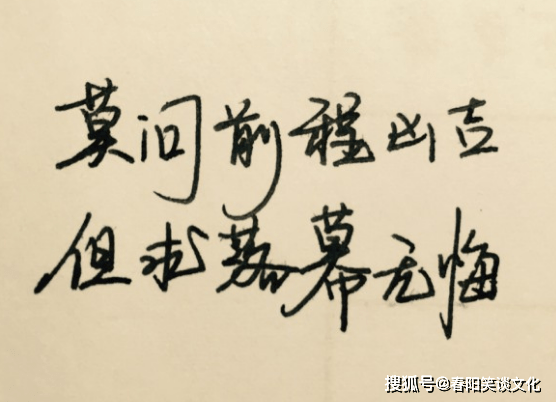 莫问前程凶吉
但求落幕无悔
搜狐号@春阳笑谈文化